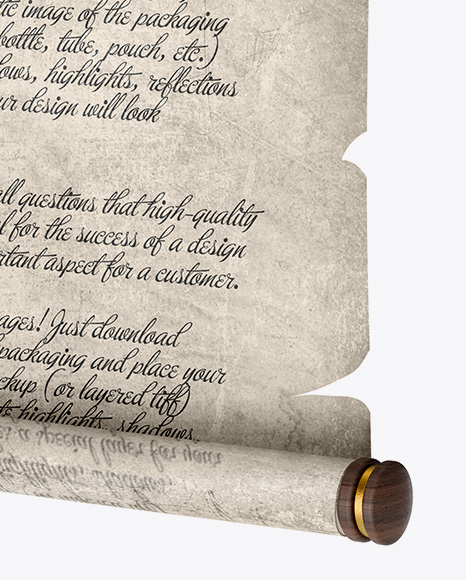 tic image of the packaging
bottle, tube, pouch, etc.)
ows, highlights, reflections
ur design will look
all questions that high-quality
l for the success of a design
rtant aspect for a customer.
ages! Just download
packaging and place your
ckup (or layered tiff)
highlights, shadows,
a special layer for your